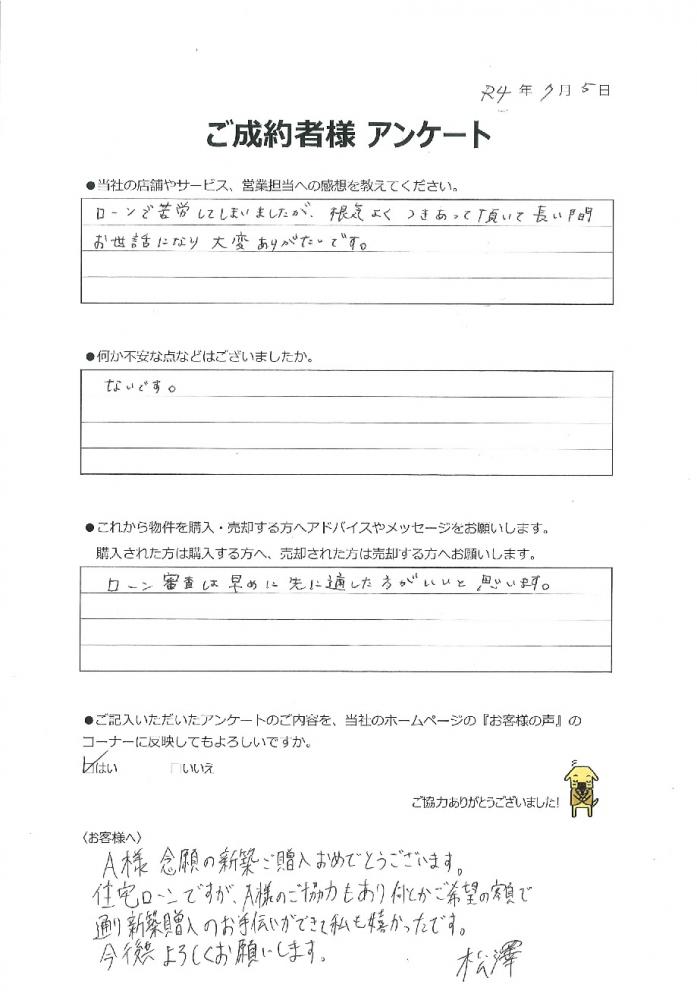 R4年7月5日
ご成約者様 アンケート
●当社の店舗やサービス、営業担当への感想を教えてください。
ローンで苦労してしまいましたが、根気よくつきあって頂いて長い間
お世話になり大変ありがたいです。
●何か不安な点などはございましたか。
ないです。
●これから物件を購入・売却する方へアドバイスやメッセージをお願いします。
購入された方は購入する方へ、売却された方は売却する方へお願いします。
ローン審査は早めに先に通した方がいいと思います。
●ご記入いただいたアンケートのご内容を、当社のホームページの『お客様の声』の
コーナーに反映してもよろしいですか。
☑はい □いいえ
ご協力ありがとうございました!
〈お客様へ〉
A様 念願の新築ご購入おめでとうございます。
住宅ローンですが、A様のご協力もあり何とかご希望の額で
通り新築購入のお手伝いができて私も嬉かったです。
今後共よろしくお願いします。
松澤